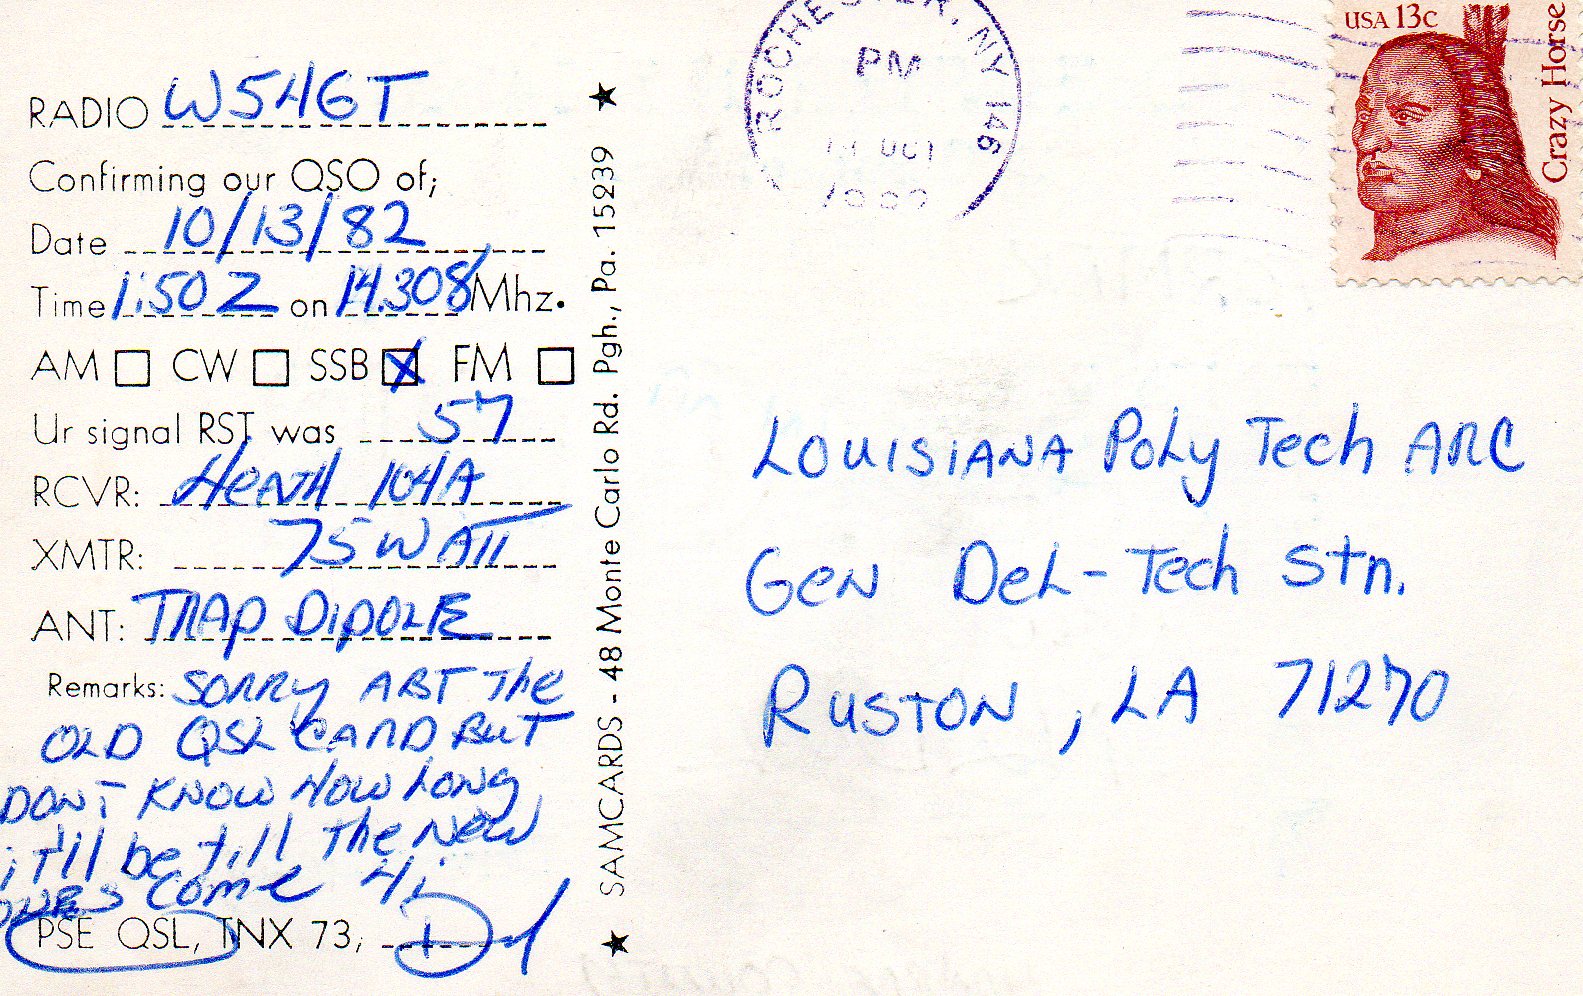 RADIO W5HGT
Confirming our QSO of;
Date 10/13/82
Time 1:50 Z on 14.308 Mhz.
AM CW SSB X FM
Ur signal RST was 57
RCVR: HeATH 104A
XMTR: 75 WATT
ANT: TRAP DIPOLE
Remarks: SORRY ABT The
OLD QSL CARD BUT
DONT KNOW HOW LONG
iT'll be till The New
ONES Come Hi
PSE QSL, TNX 73,
★ SAMCARDS - 48 Monte Carlo Rd. Pgh., Pa. 15239 ★
ROCHESTER, NY 146
PM
OCT
USA 13c
Crazy Horse
LOUISIANA Poly Tech ARC
Gen Del - Tech Stn.
RUSTON, LA 71270